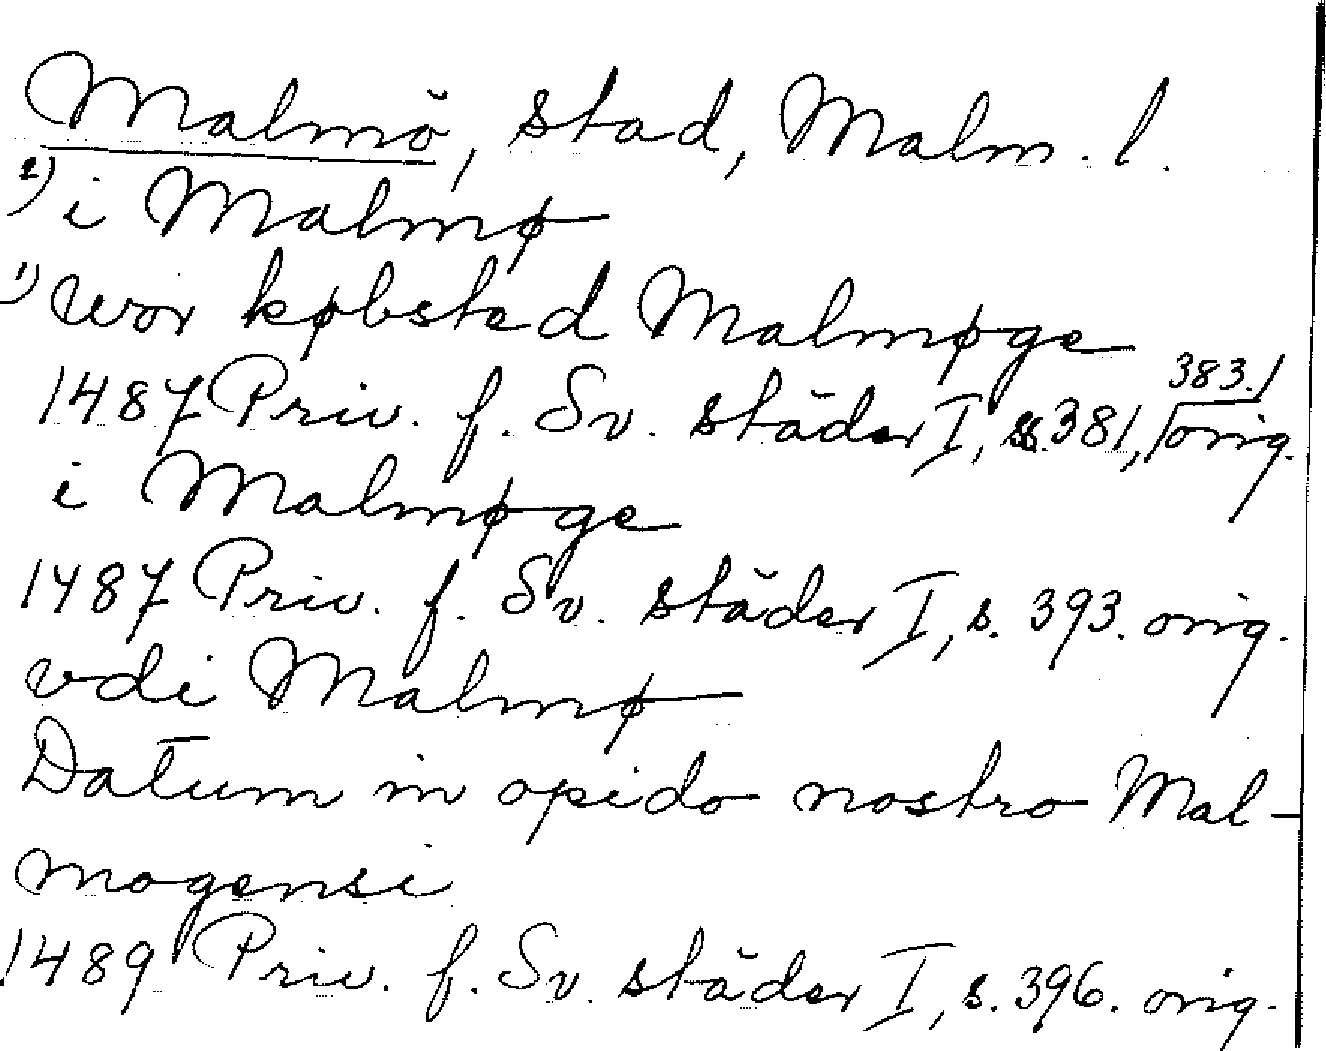 Malmö, stad, Malm. l.
2) i Malmø
1) wor købsted Malmøge
1487 Priv. f. Sv. städer I, s. 381, 383. orig.
i Malmøge
1487 Priv. f. Sv. städer I, s. 393. orig.
vdi Malmø
Datum in opido nostro Mal-
mogensi
1489 Priv. f. Sv. städer I, s. 396. orig.